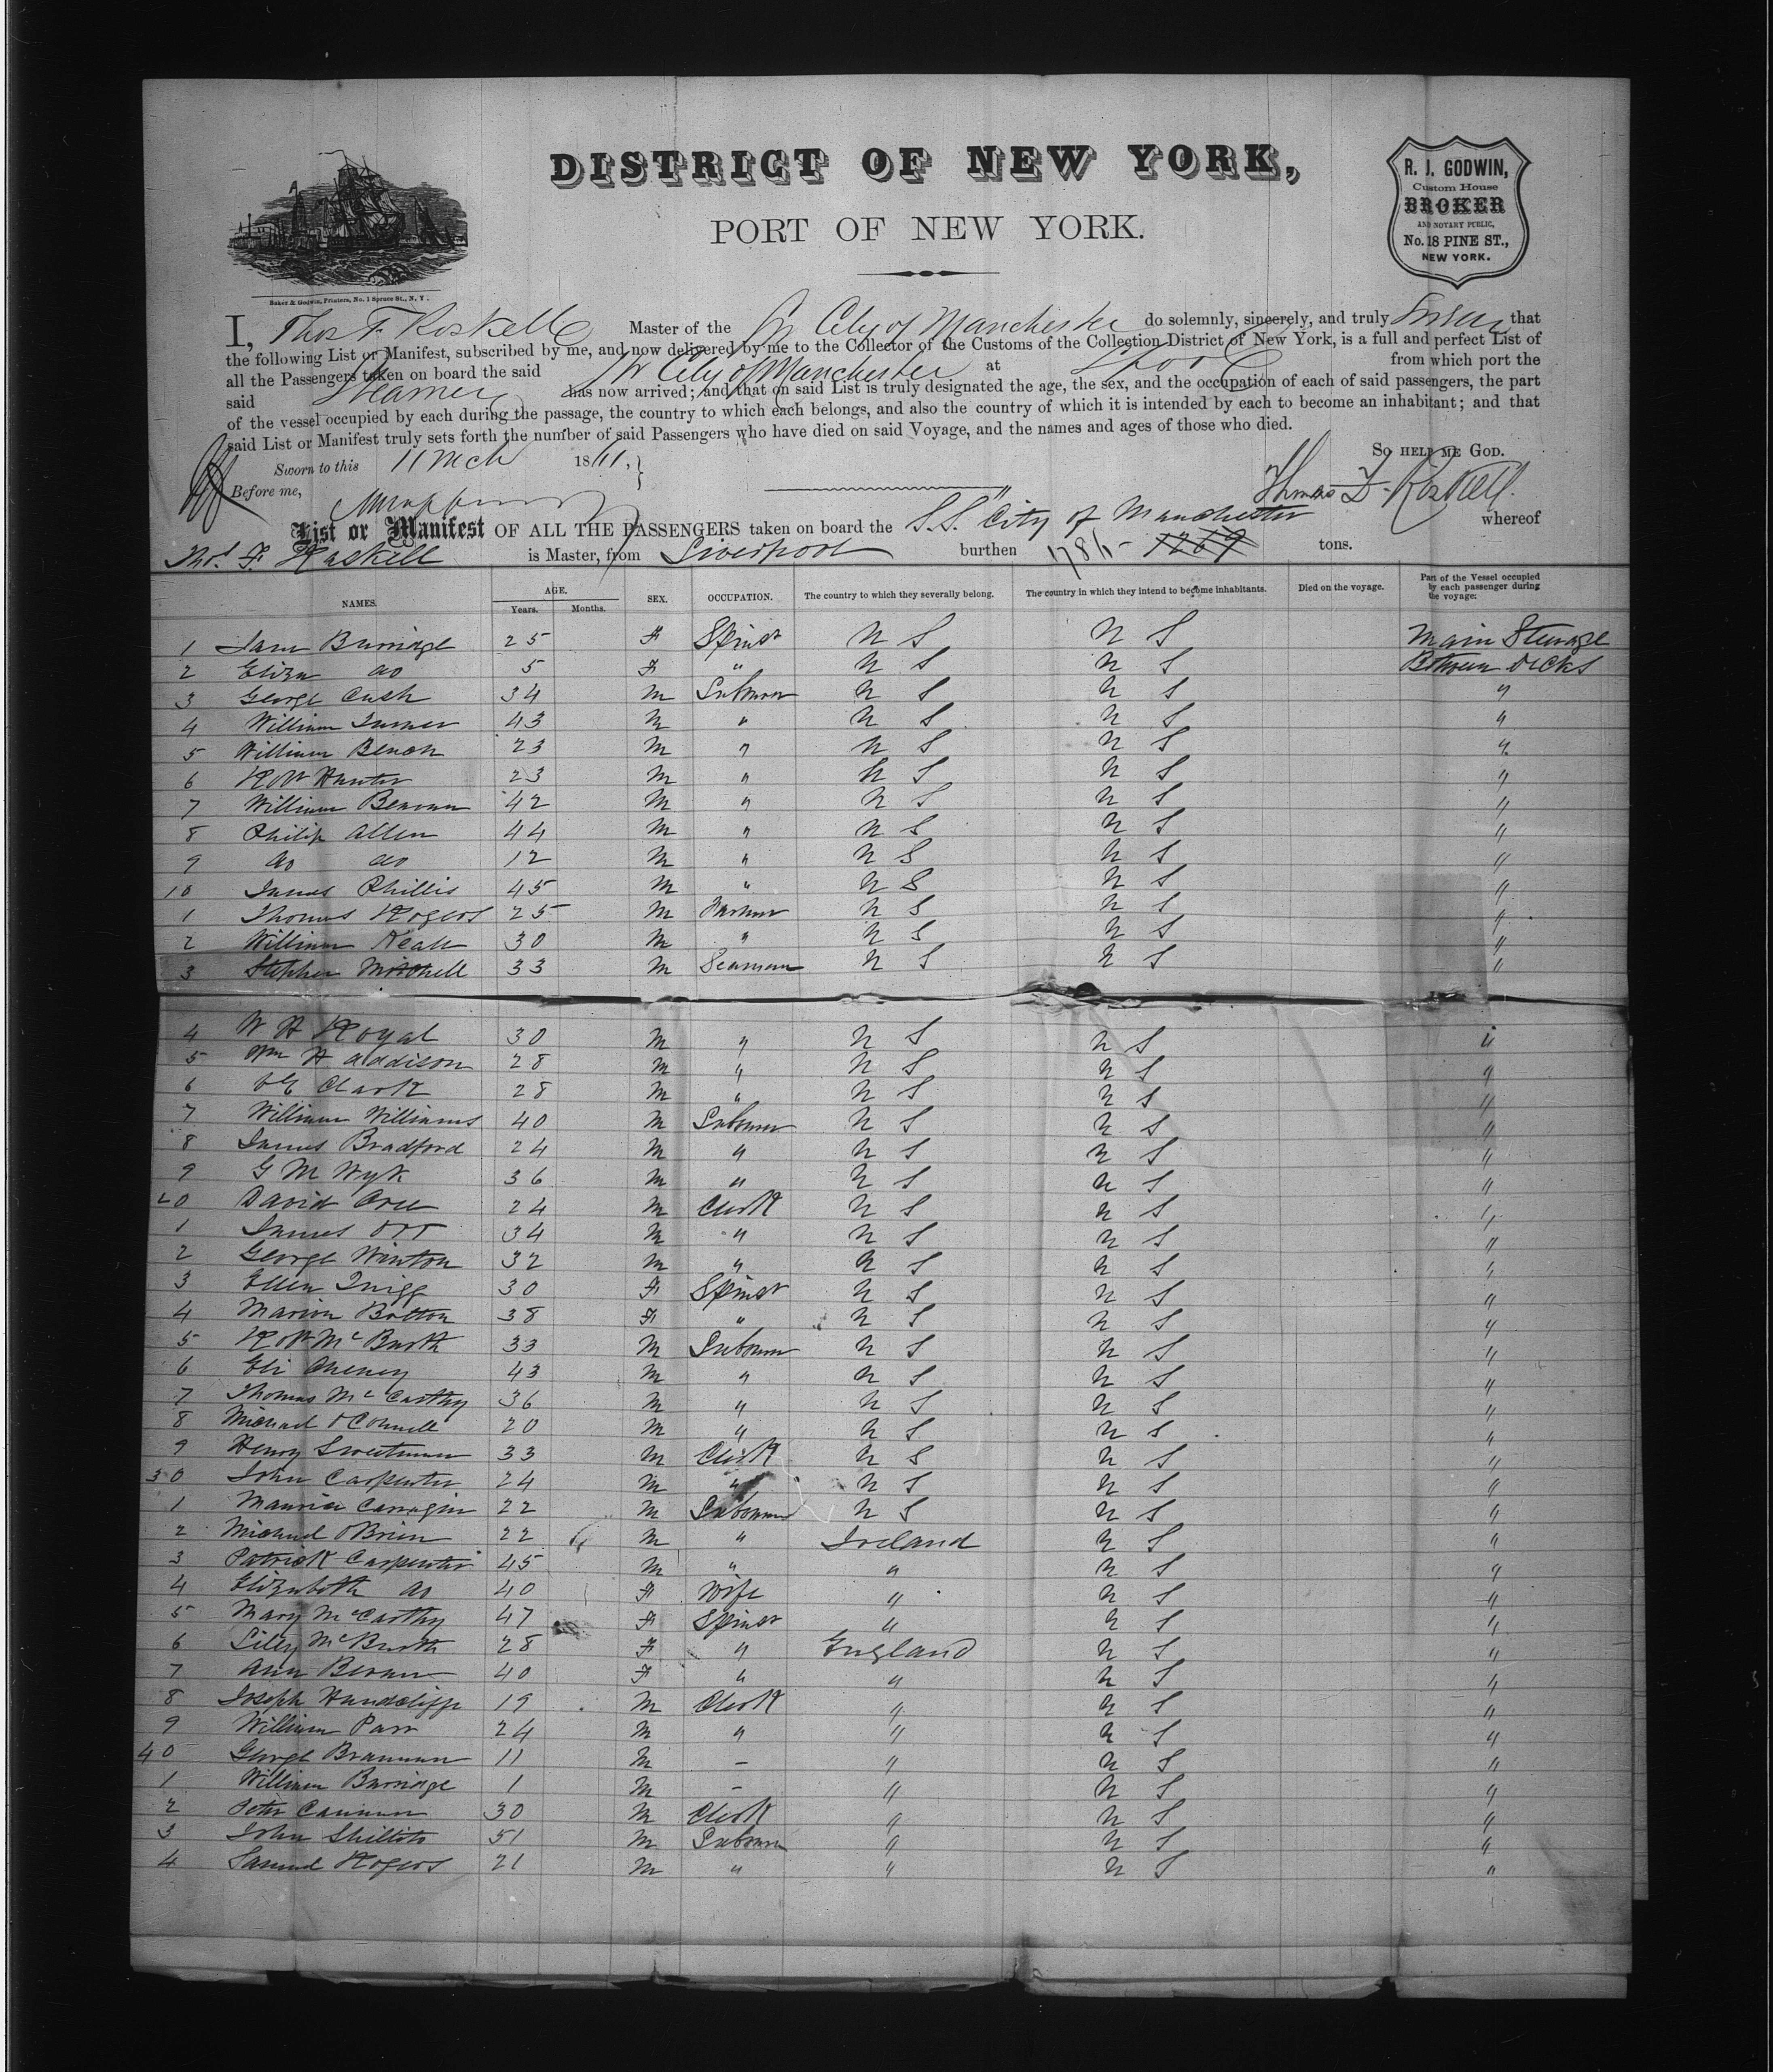 DISTRICT OF NEW YORK,
PORT OF NEW YORK.
R. J. GODWIN,
Custom House
BROKER
AND NOTARY PUBLIC,
No. 18 PINE ST.,
NEW YORK.
Baker & Godwin, Printers, No. 1 Spruce St., N. Y.
I, Thos F. Roskell Master of the City of Manchester do solemnly, sincerely, and truly that
the following List or Manifest, subscribed by me, and now delivered by me to the Collector of the Customs of the Collection District of New York, is a full and perfect List of
all the Passengers taken on board the said City of Manchester at from which port the
said Steamer has now arrived; and that on said List is truly designated the age, the sex, and the occupation of each of said passengers, the part
of the vessel occupied by each during the passage, the country to which each belongs, and also the country of which it is intended by each to become an inhabitant; and that
said List or Manifest truly sets forth the number of said Passengers who have died on said Voyage, and the names and ages of those who died.
So HELP ME GOD.
Sworn to this 11 Mch 18
Before me,
Thomas F. Roskell
List or Manifest OF ALL THE PASSENGERS taken on board the S.S. "City of Manchester whereof
Thos. F. Roskell is Master, from Liverpool burthen tons.
NAMES. AGE. Years. Months. SEX. OCCUPATION. The country to which they severally belong. The country in which they intend to become inhabitants. Died on the voyage. Part of the Vessel occupied by each passenger during the voyage:
1 Jane Burridge 25 F Spinst U S U S Main Steerage
2 Eliza do 5 F " U S U S Between Decks
3 George Cush 34 M Labourer U S U S "
4 William Turner 43 M " U S U S "
5 William 23 M " U S U S "
6 Robt Hunter 23 M " U S U S "
7 William 42 M " U S U S "
8 Philip Allen 44 M " U S U S "
9 do do 12 M " U S U S "
10 James Phillis 45 M " U S U S "
1 Thomas Rogers 25 M Farmer U S U S "
2 William Neall 30 M " U S U S "
3 Stephen Mitchell 33 M Seaman U S U S "
4 W H Royal 30 M " U S U S "
5 Wm H Addison 28 M " U S U S "
6 Clark 28 M " U S U S "
7 William Williams 40 M Labourer U S U S "
8 James Bradford 24 M " U S U S "
9 G M Wyk 36 M " U S U S "
20 David Orr 24 M Clerk U S U S "
1 James Orr 34 M " U S U S "
2 George Winton 32 M " U S U S "
3 Ellen Quigg 30 F Spinst U S U S "
4 Marion Bolton 38 F " U S U S "
5 Robt Mc 33 M Labourer U S U S "
6 Eli Cheney 43 M " U S U S "
7 Thomas McCarthy 36 M " U S U S "
8 Michael O'Connell 20 M " U S U S "
9 Henry Sweetman 33 M Clerk U S U S "
30 John Carpenter 24 M " U S U S "
1 Maurice 22 M Labourer U S U S "
2 Michael OBrien 22 M " Ireland U S "
3 Patrick Carpenter 45 M " " U S "
4 Elizabeth do 40 F Wife " U S "
5 Mary McCarthy 47 F Spinst " U S "
6 Mc 28 F " England U S "
7 Ann 40 F " " U S "
8 Joseph Handcliffe 19 M Clerk " U S "
9 William Parr 24 M " " U S "
40 George Brannan 11 M - " U S "
1 William Burridge 1 M - " U S "
2 Peter Cannon 30 M Clerk " U S "
3 John Shillito 51 M Labourer " U S "
4 Samuel Rogers 21 M " " U S "